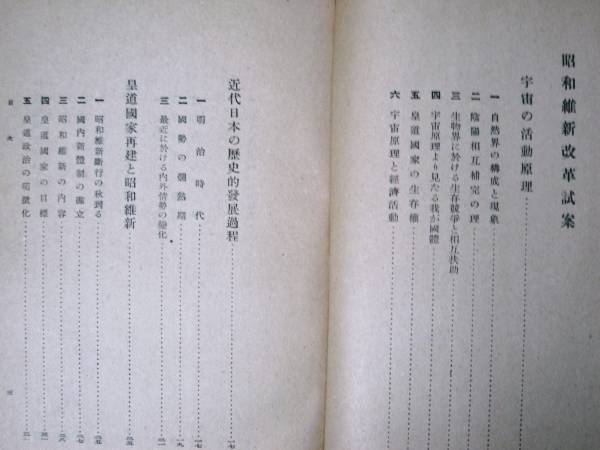 昭和維新改革試案
宇宙の活動原理
一 自然界の構成と現象
二 陰陽相互補完の理
三 生物界に於ける生存競爭と相互扶助
四 宇宙原理より見たる我が國體
五 皇道國家の生存權
六 宇宙原理と經濟活動
近代日本の歷史的發展過程 一七
一 明治時代 一七
二 國勢の爛熟期 一九
三 最近に於ける内外情勢の變化
皇道國家再建と昭和維新
一 昭和維新斷行の秋到る
二 國内新體制の確立
三 昭和維新の内容
四 皇道國家の目標
五 皇道政治の明徵化
目次